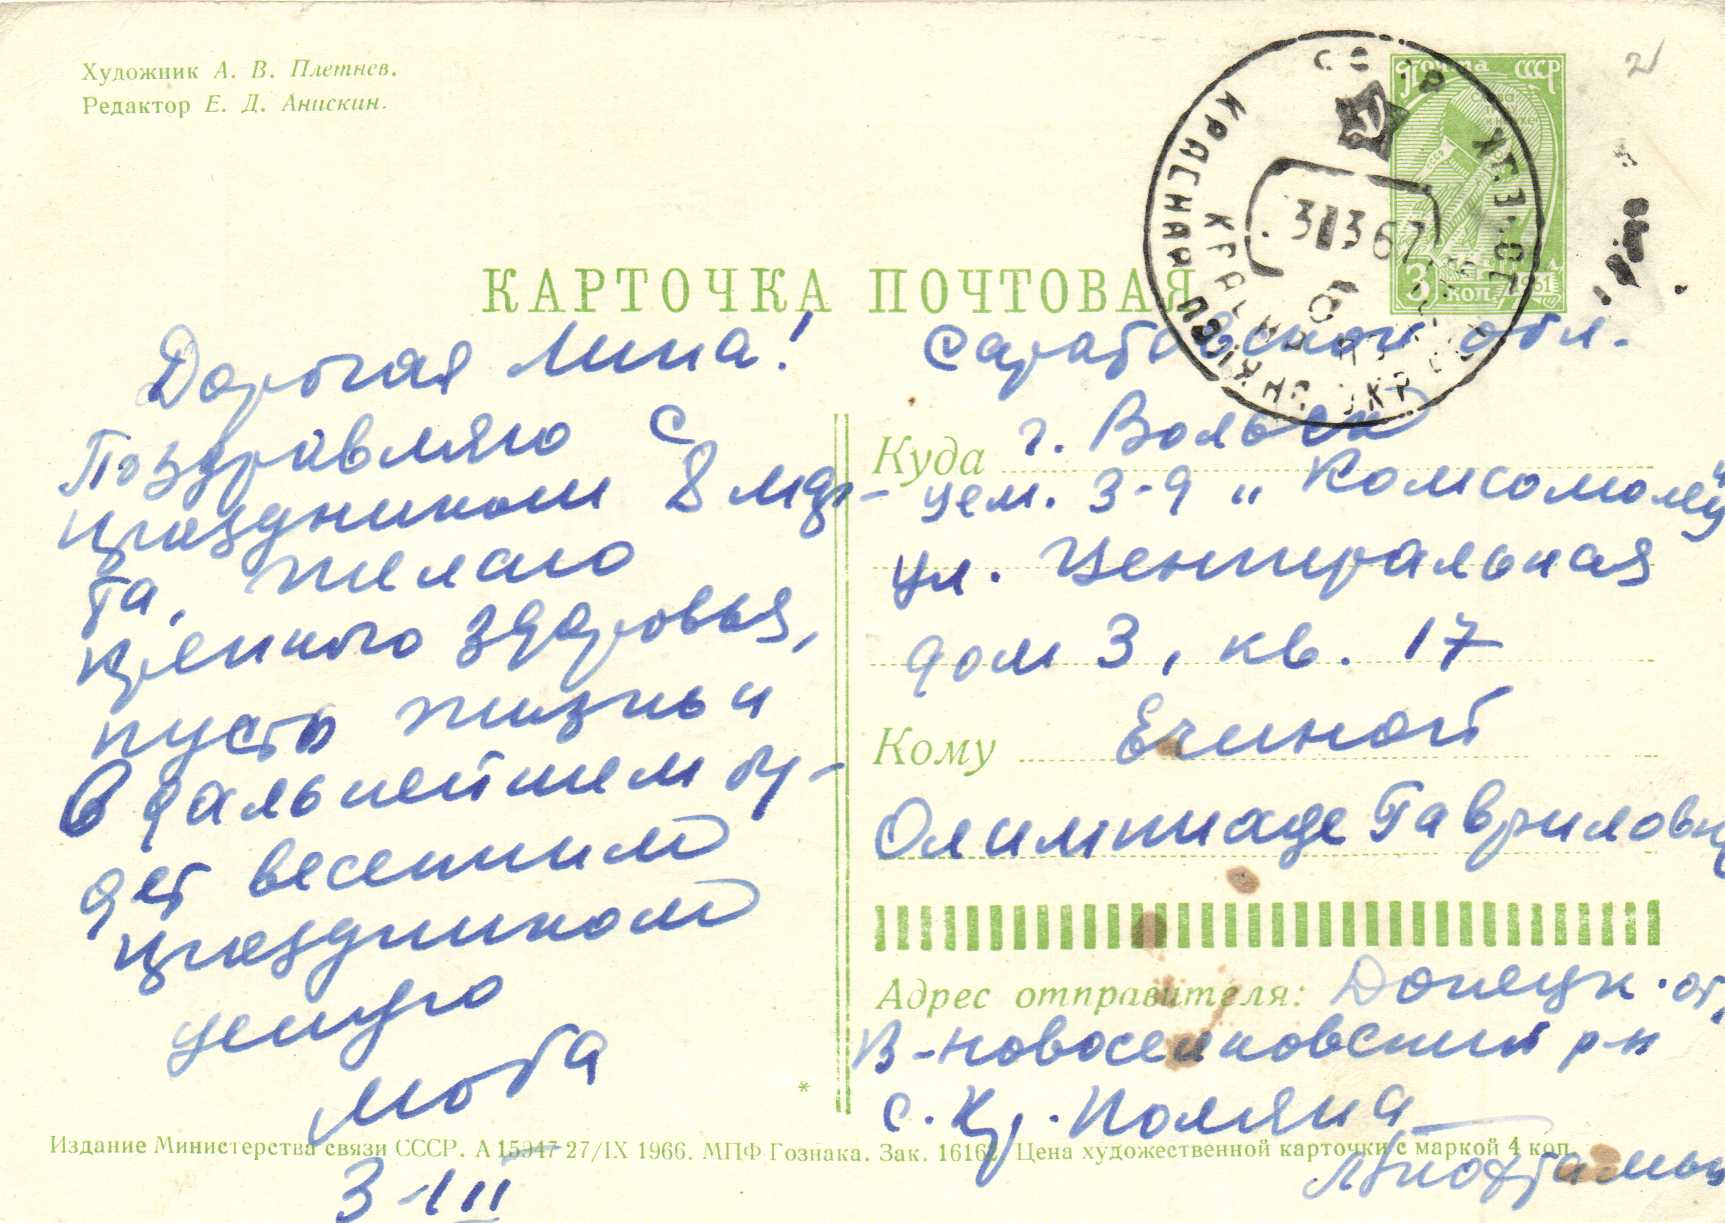 Художник А. В. Плетнев.
Редактор Е. Д. Анискин.
Почта СССР
3 коп. 1961
СССР
КРАСНАЯ
3 3 67
КАРТОЧКА ПОЧТОВАЯ
Дорогая Липа!
Поздравляю с
праздником 8 мар-
та, желаю
крепкого здоровья,
пусть жизнь и
в дальнейшем бу-
дет весенним
праздником
целую
Люба
3-III
Саратовской обл.
Куда г. Вольск
цем. з-д "Комсомолец"
ул. Центральная
дом 3, кв. 17
Кому Ечиной
Олимпиаде Гавриловне
Адрес отправителя: Донецк. об,
В-новоселковский р-н
с. Кр. Поляна
*
Издание Министерства связи СССР. А 15947 27/IX 1966. МПФ Гознака. Зак. 16162 Цена художественной карточки с маркой 4 коп.